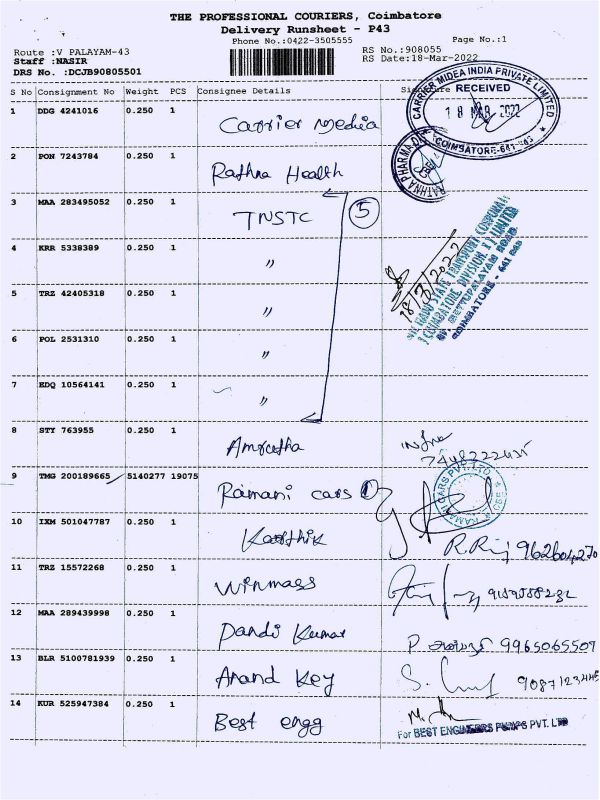 THE PROFESSIONAL COURIERS, Coimbatore
Delivery Runsheet - P43
Phone No.:0422-3505555
Page No.:1
Route :V PALAYAM-43
RS No.:908055
Staff :NASIR
RS Date:18-Mar-2022
DRS No. :DCJB90805501
S No Consignment No Weight PCS Consignee Details Signature
CARRIER MIDEA INDIA PRIVATE LIMITED
RECEIVED
18 MAR 2022
COIMBATORE-641
1 DDG 4241016 0.250 1 Carrier media
2 PON 7243784 0.250 1 Rathna Health
RATHNA PHARMA
3 MAA 283495052 0.250 1 TNSTC 5
4 KRR 5338389 0.250 1 "
5 TRZ 42405318 0.250 1 "
6 POL 2531310 0.250 1 "
7 EDQ 10564141 0.250 1 "
18/3/2022
STATE TRANSPORT CORPORATION
(COIMBATORE DIVISION 1) LIMITED
METTUPALAYAM ROAD
COIMBATORE - 641
8 STY 763955 0.250 1 Amrutha
9 TMG 200189665 5140277 19075 Ramani cars
RAMANI CARS PVT. LTD
CBE
10 IXM 501047787 0.250 1 Karthik
9626604270
11 TRZ 15572268 0.250 1 Winmass
12 MAA 289439998 0.250 1 Pandi Kumar
9965065507
13 BLR 5100781939 0.250 1 Anand Key
9087123445
14 KUR 525947384 0.250 1 Best engg
For BEST ENGINEERS PUMPS PVT. LTD